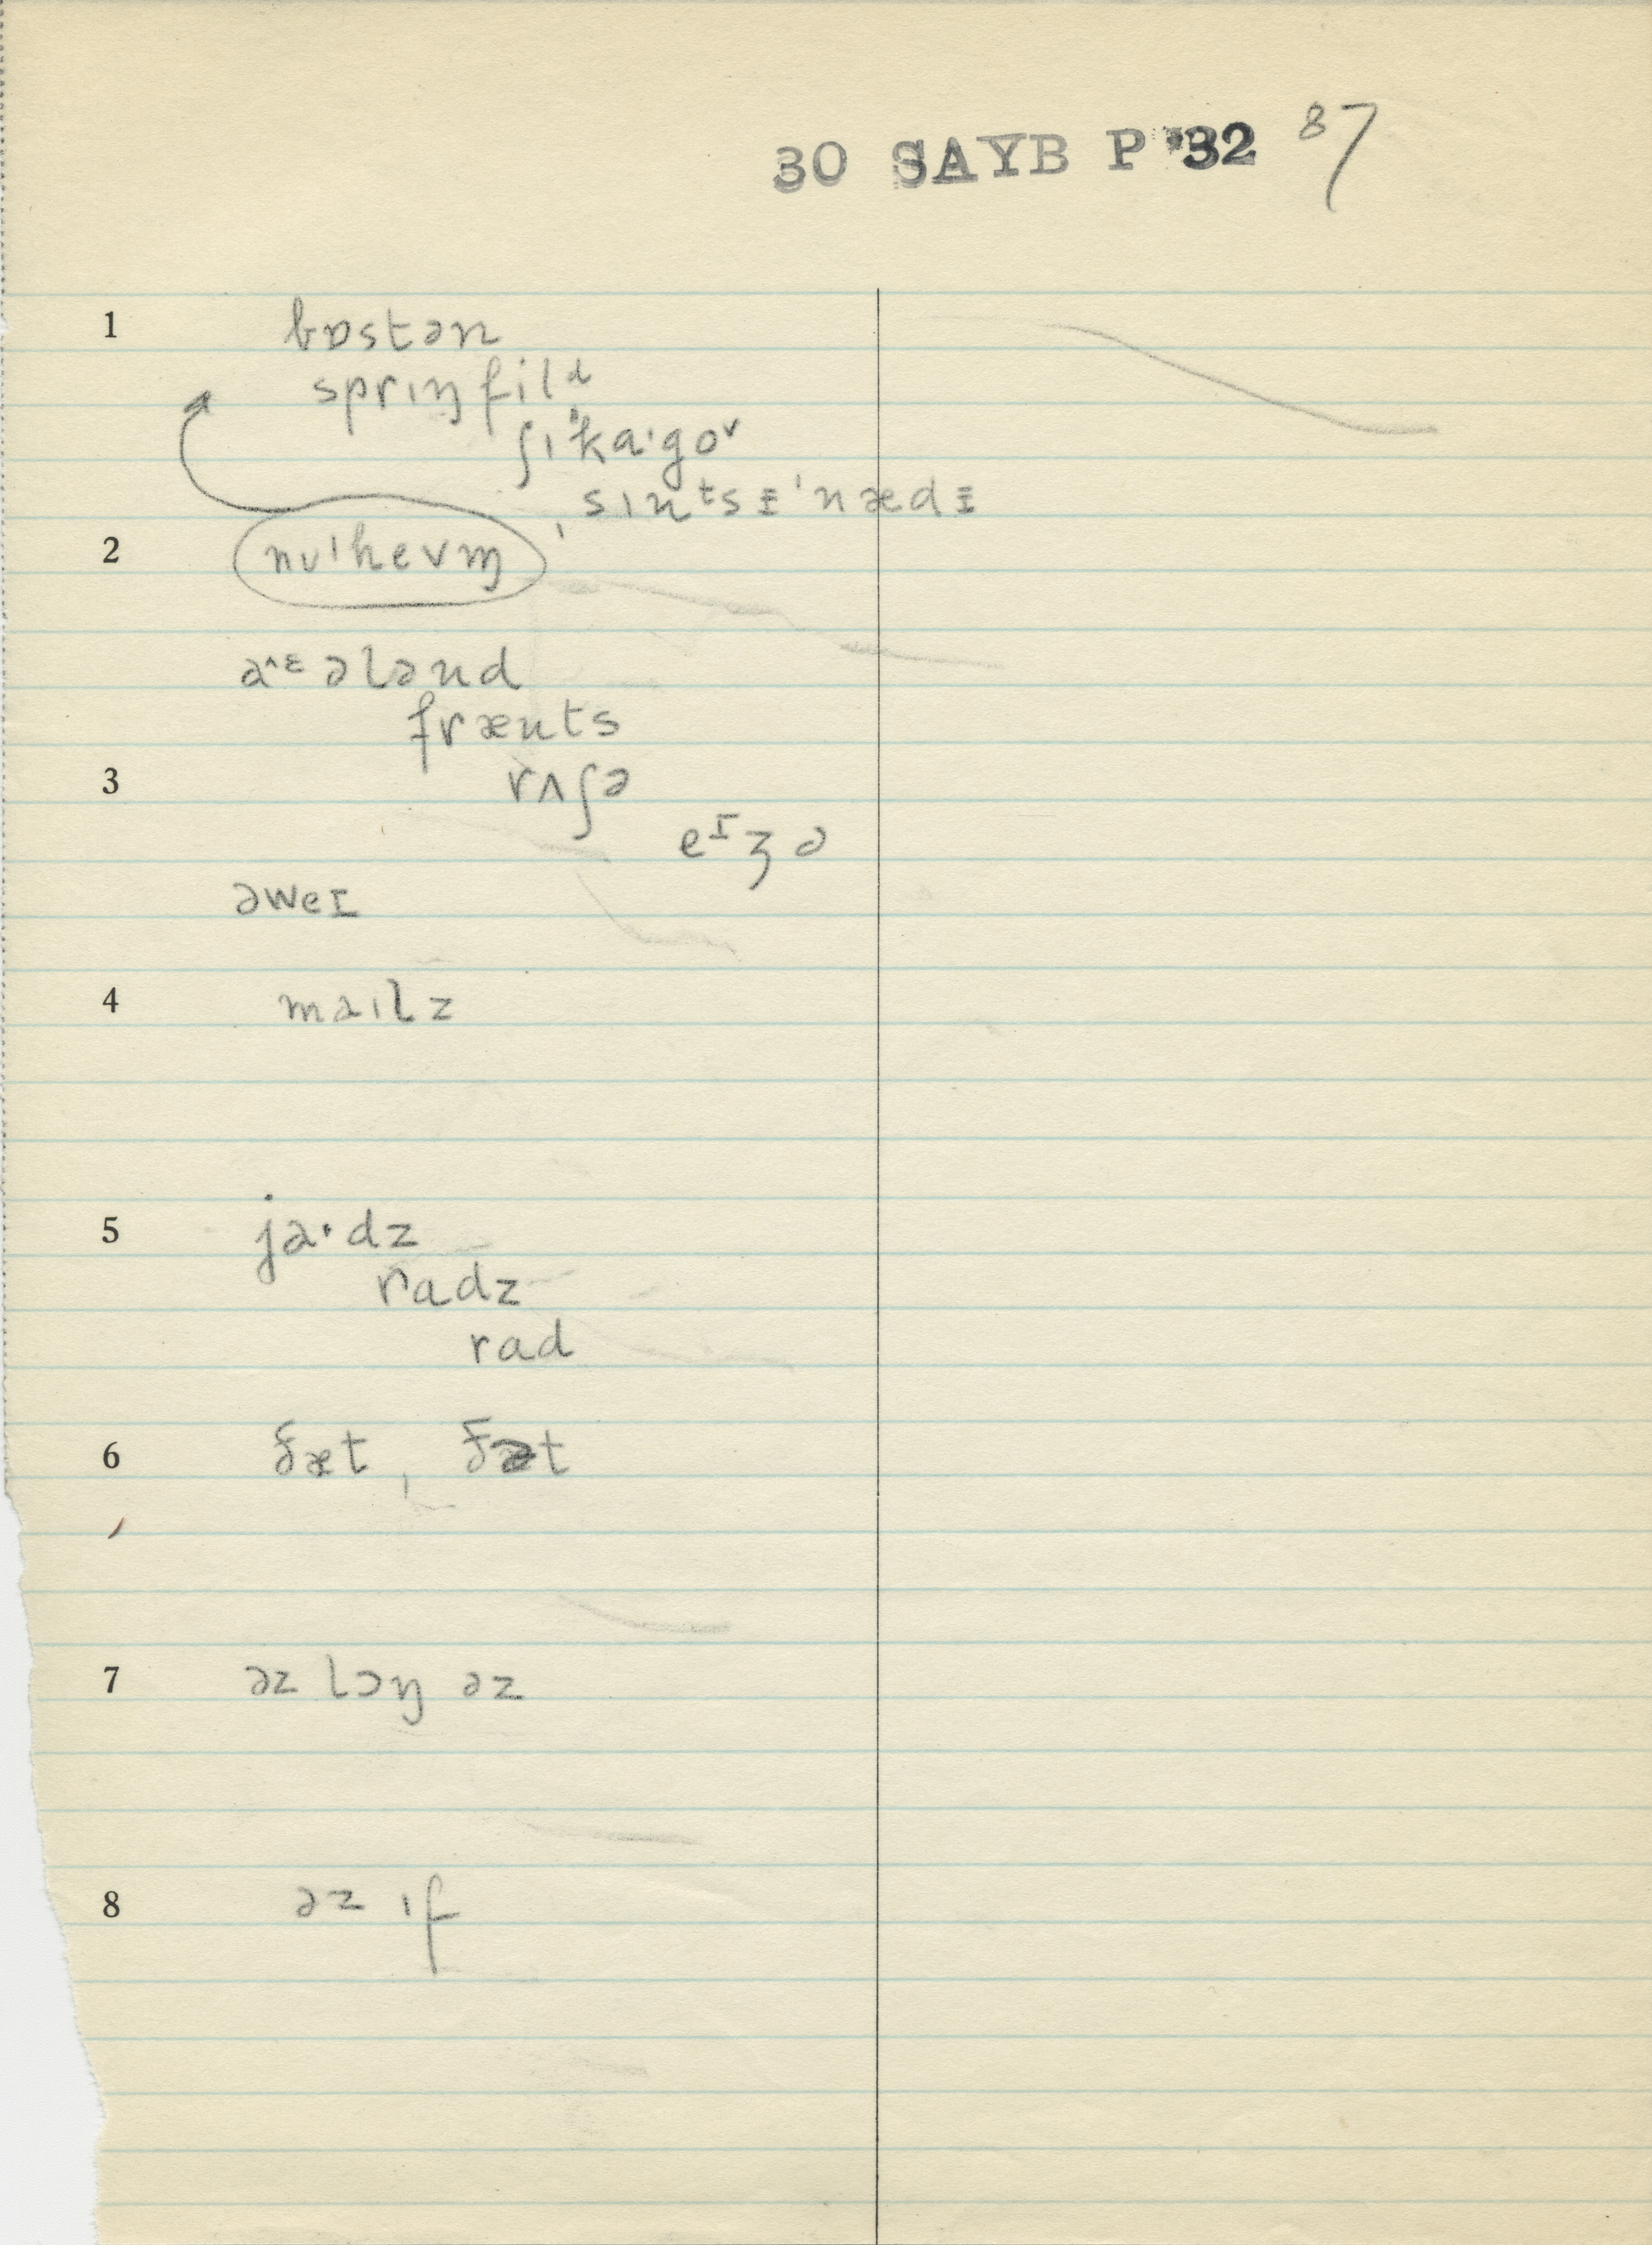 30 SAYB P '32 87
1 bɒstən
sprɪŋfilᵈ
ʃɪˈka·goᵛ
sɪnᵗsᵻˈnædᵻ
2 nuˈhevm̩,
a^ᵋələnd
frænts
3 rʌʃə
eᶦʒə
əweɪ
4 maɪlz
5 ja·dz
radz
rad
6 ðæt, ðət
7 əz lɔŋ əz
8 əz ɪf